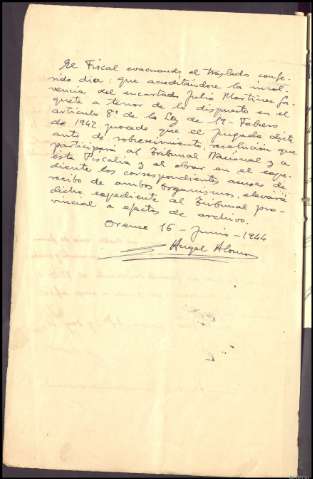 El Fiscal evacuando el traslado confe-
rido dice: que acreditándose la insol-
vencia del encartado Julio Martínez
a tenor de lo dispuesto en el
artículo 8º de la Ley de 19-Febrero
de 1942 procede que el Juzgado dicte
auto de sobreseimiento, resolución que
participará al Tribunal Nacional y a
esta Fiscalía y al obrar en el expe-
diente los correspondientes acuses de
recibo de ambos organismos, elevará
dicho expediente al Tribunal pro-
vincial a efectos de archivo.
Orense 16-Junio-1944
Angel Alonso